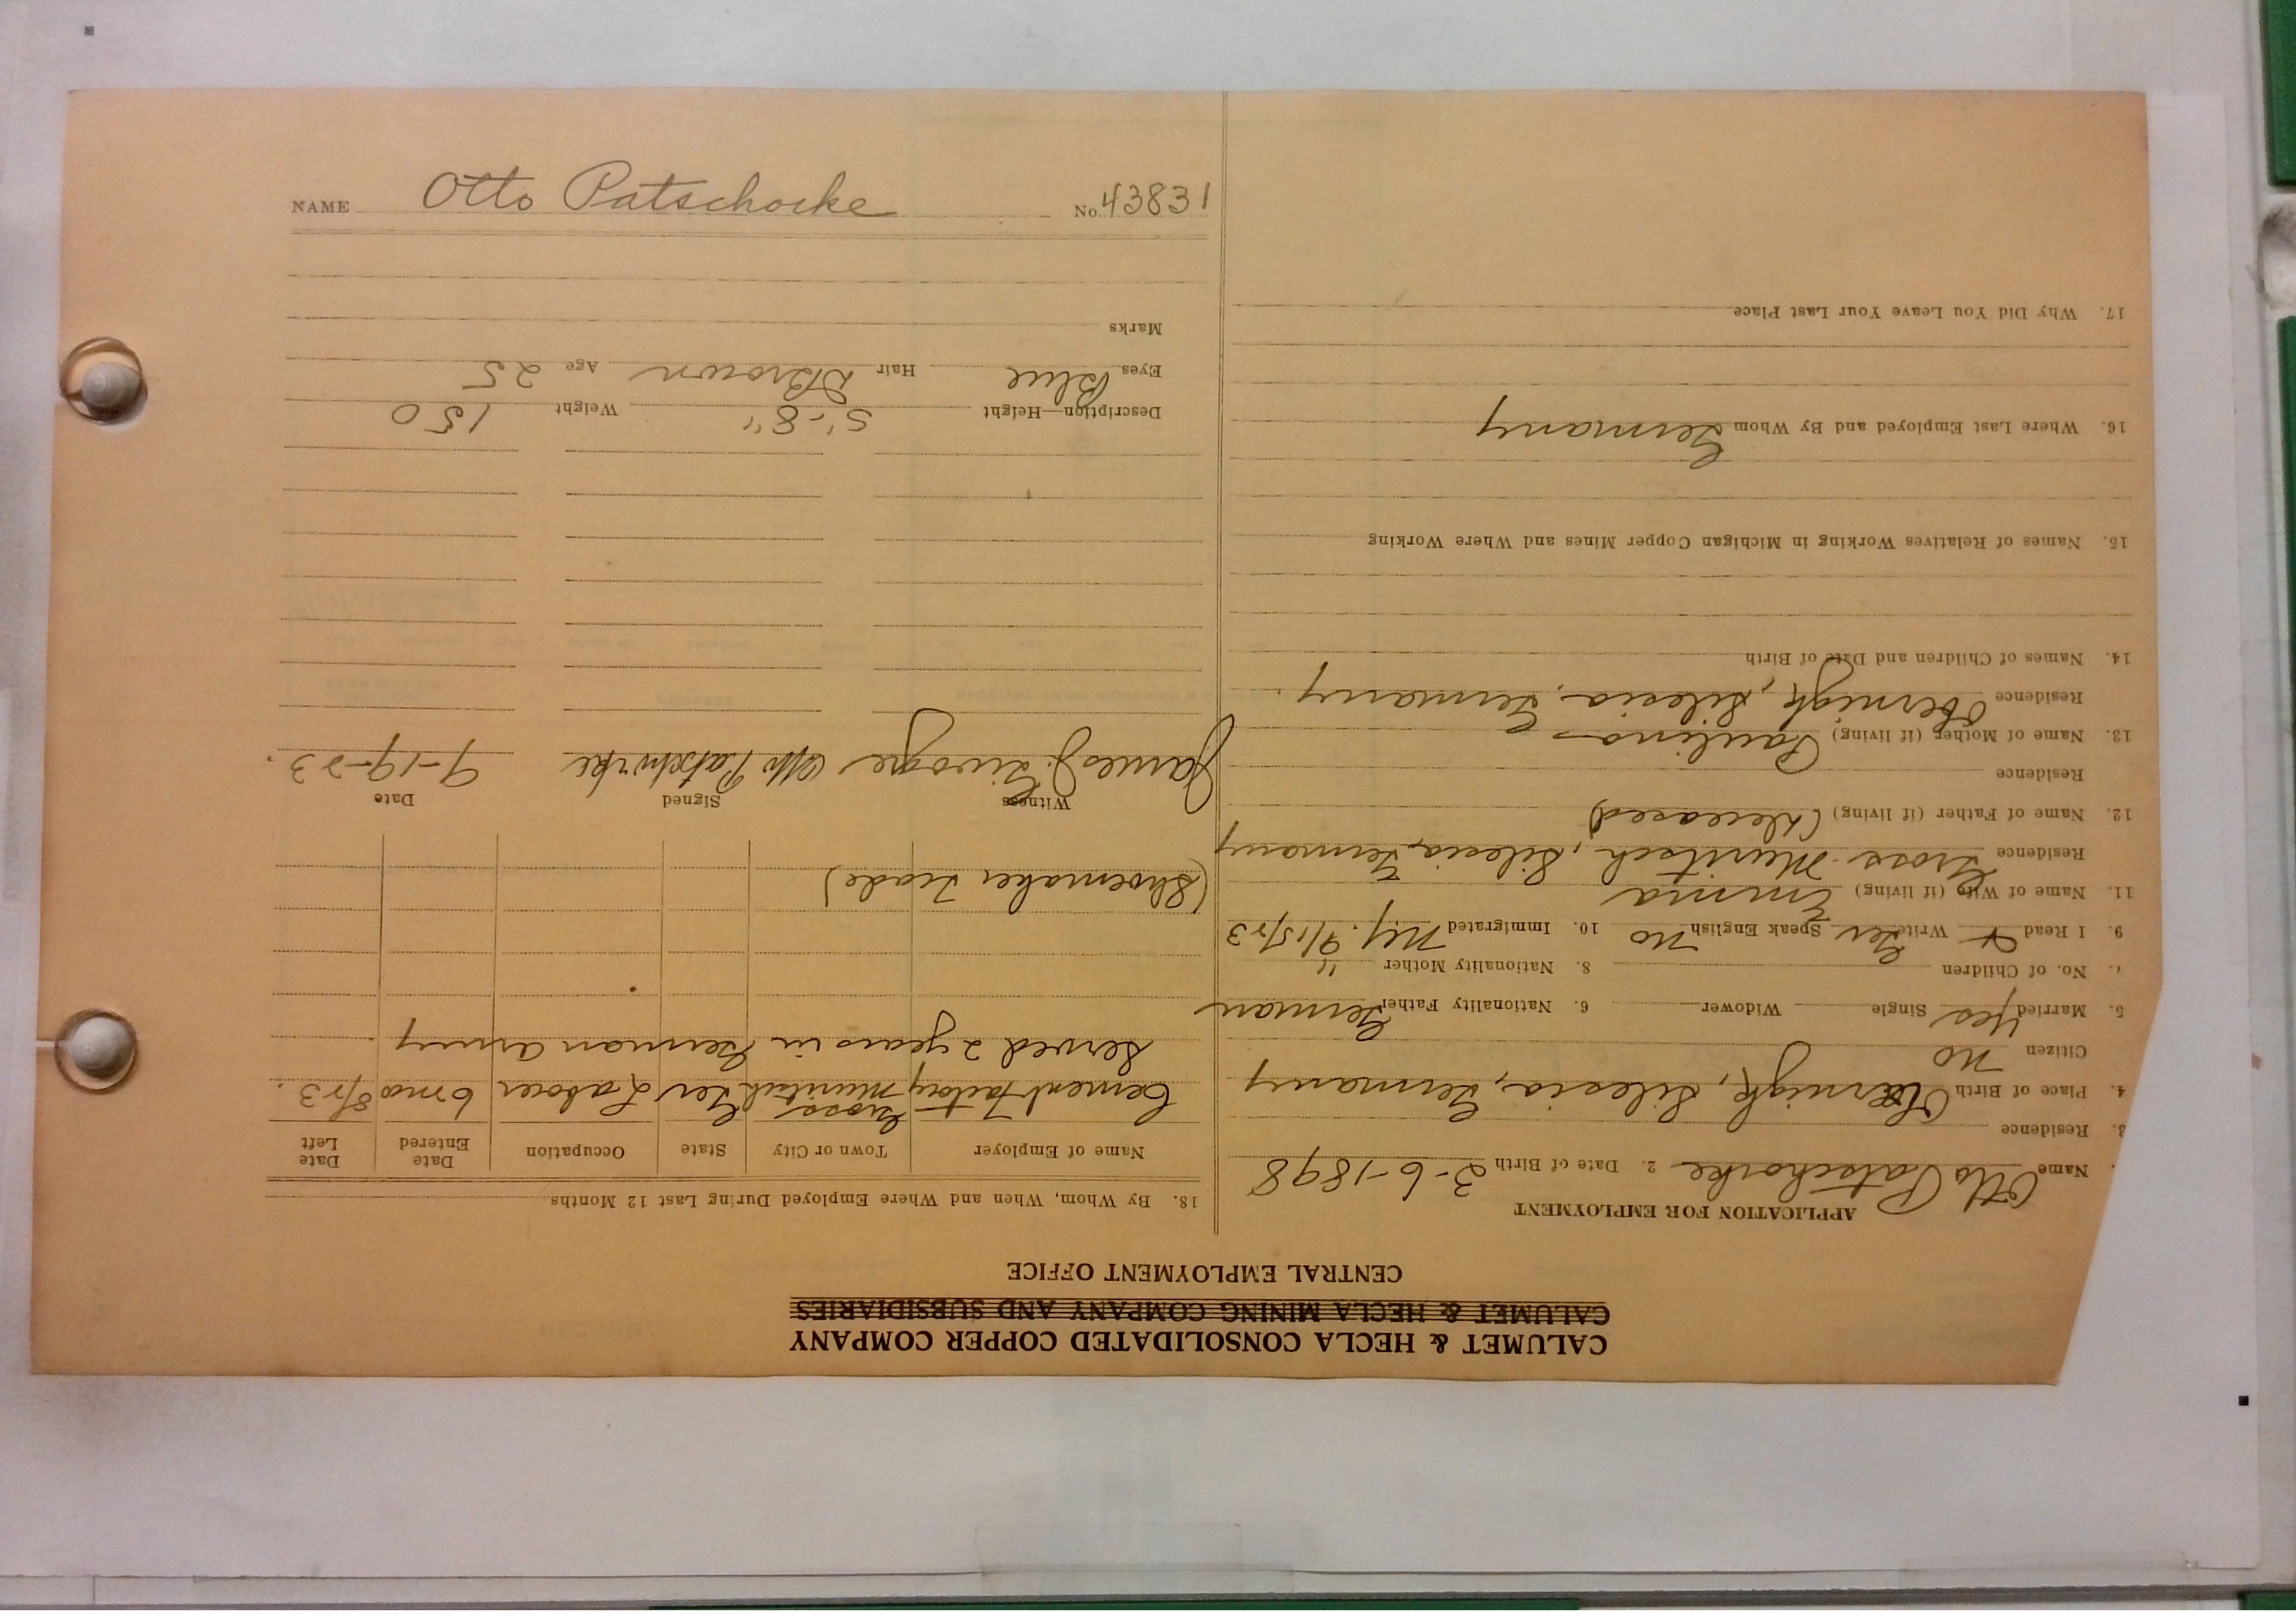 CALUMET & HECLA CONSOLIDATED COPPER COMPANY
CALUMET & HECLA MINING COMPANY AND SUBSIDIARIES
CENTRAL EMPLOYMENT OFFICE
APPLICATION FOR EMPLOYMENT
Name Otto Patschorke 2. Date of Birth 3-6-1898
3. Residence
4. Place of Birth Obernigk, Silesia, Germany
Citizen no
5. Married Yes Single Widower 6. Nationality Father German
7. No. of Children 8. Nationality Mother "
9. I Read & Write Ger Speak English no 10. Immigrated N.Y. 9/15/23
11. Name of Wife (if living) Emma
Residence Gross Muritsch, Silesia, Germany
12. Name of Father (if living) (deceased)
Residence
13. Name of Mother (if living) Paulina
Residence Obernigk, Silesia, Germany.
14. Names of Children and Date of Birth
15. Names of Relatives Working in Michigan Copper Mines and Where Working
16. Where Last Employed and By Whom Germany
17. Why Did You Leave Your Last Place
18. By Whom, When and Where Employed During Last 12 Months
Name of Employer Town or City State Occupation Date Entered Date Left
Cement Factory Gross Muritsch Ger Laborer 6 mos 8/23.
Served 2 years in German army
(Shoemaker Trade)
Witness Signed Date
James J. Otto Patschorke 9-19-23.
Description—Height 5'-8" Weight 150
Eyes Blue Hair D Brown Age 25
Marks
NAME Otto Patschorke No. 43831